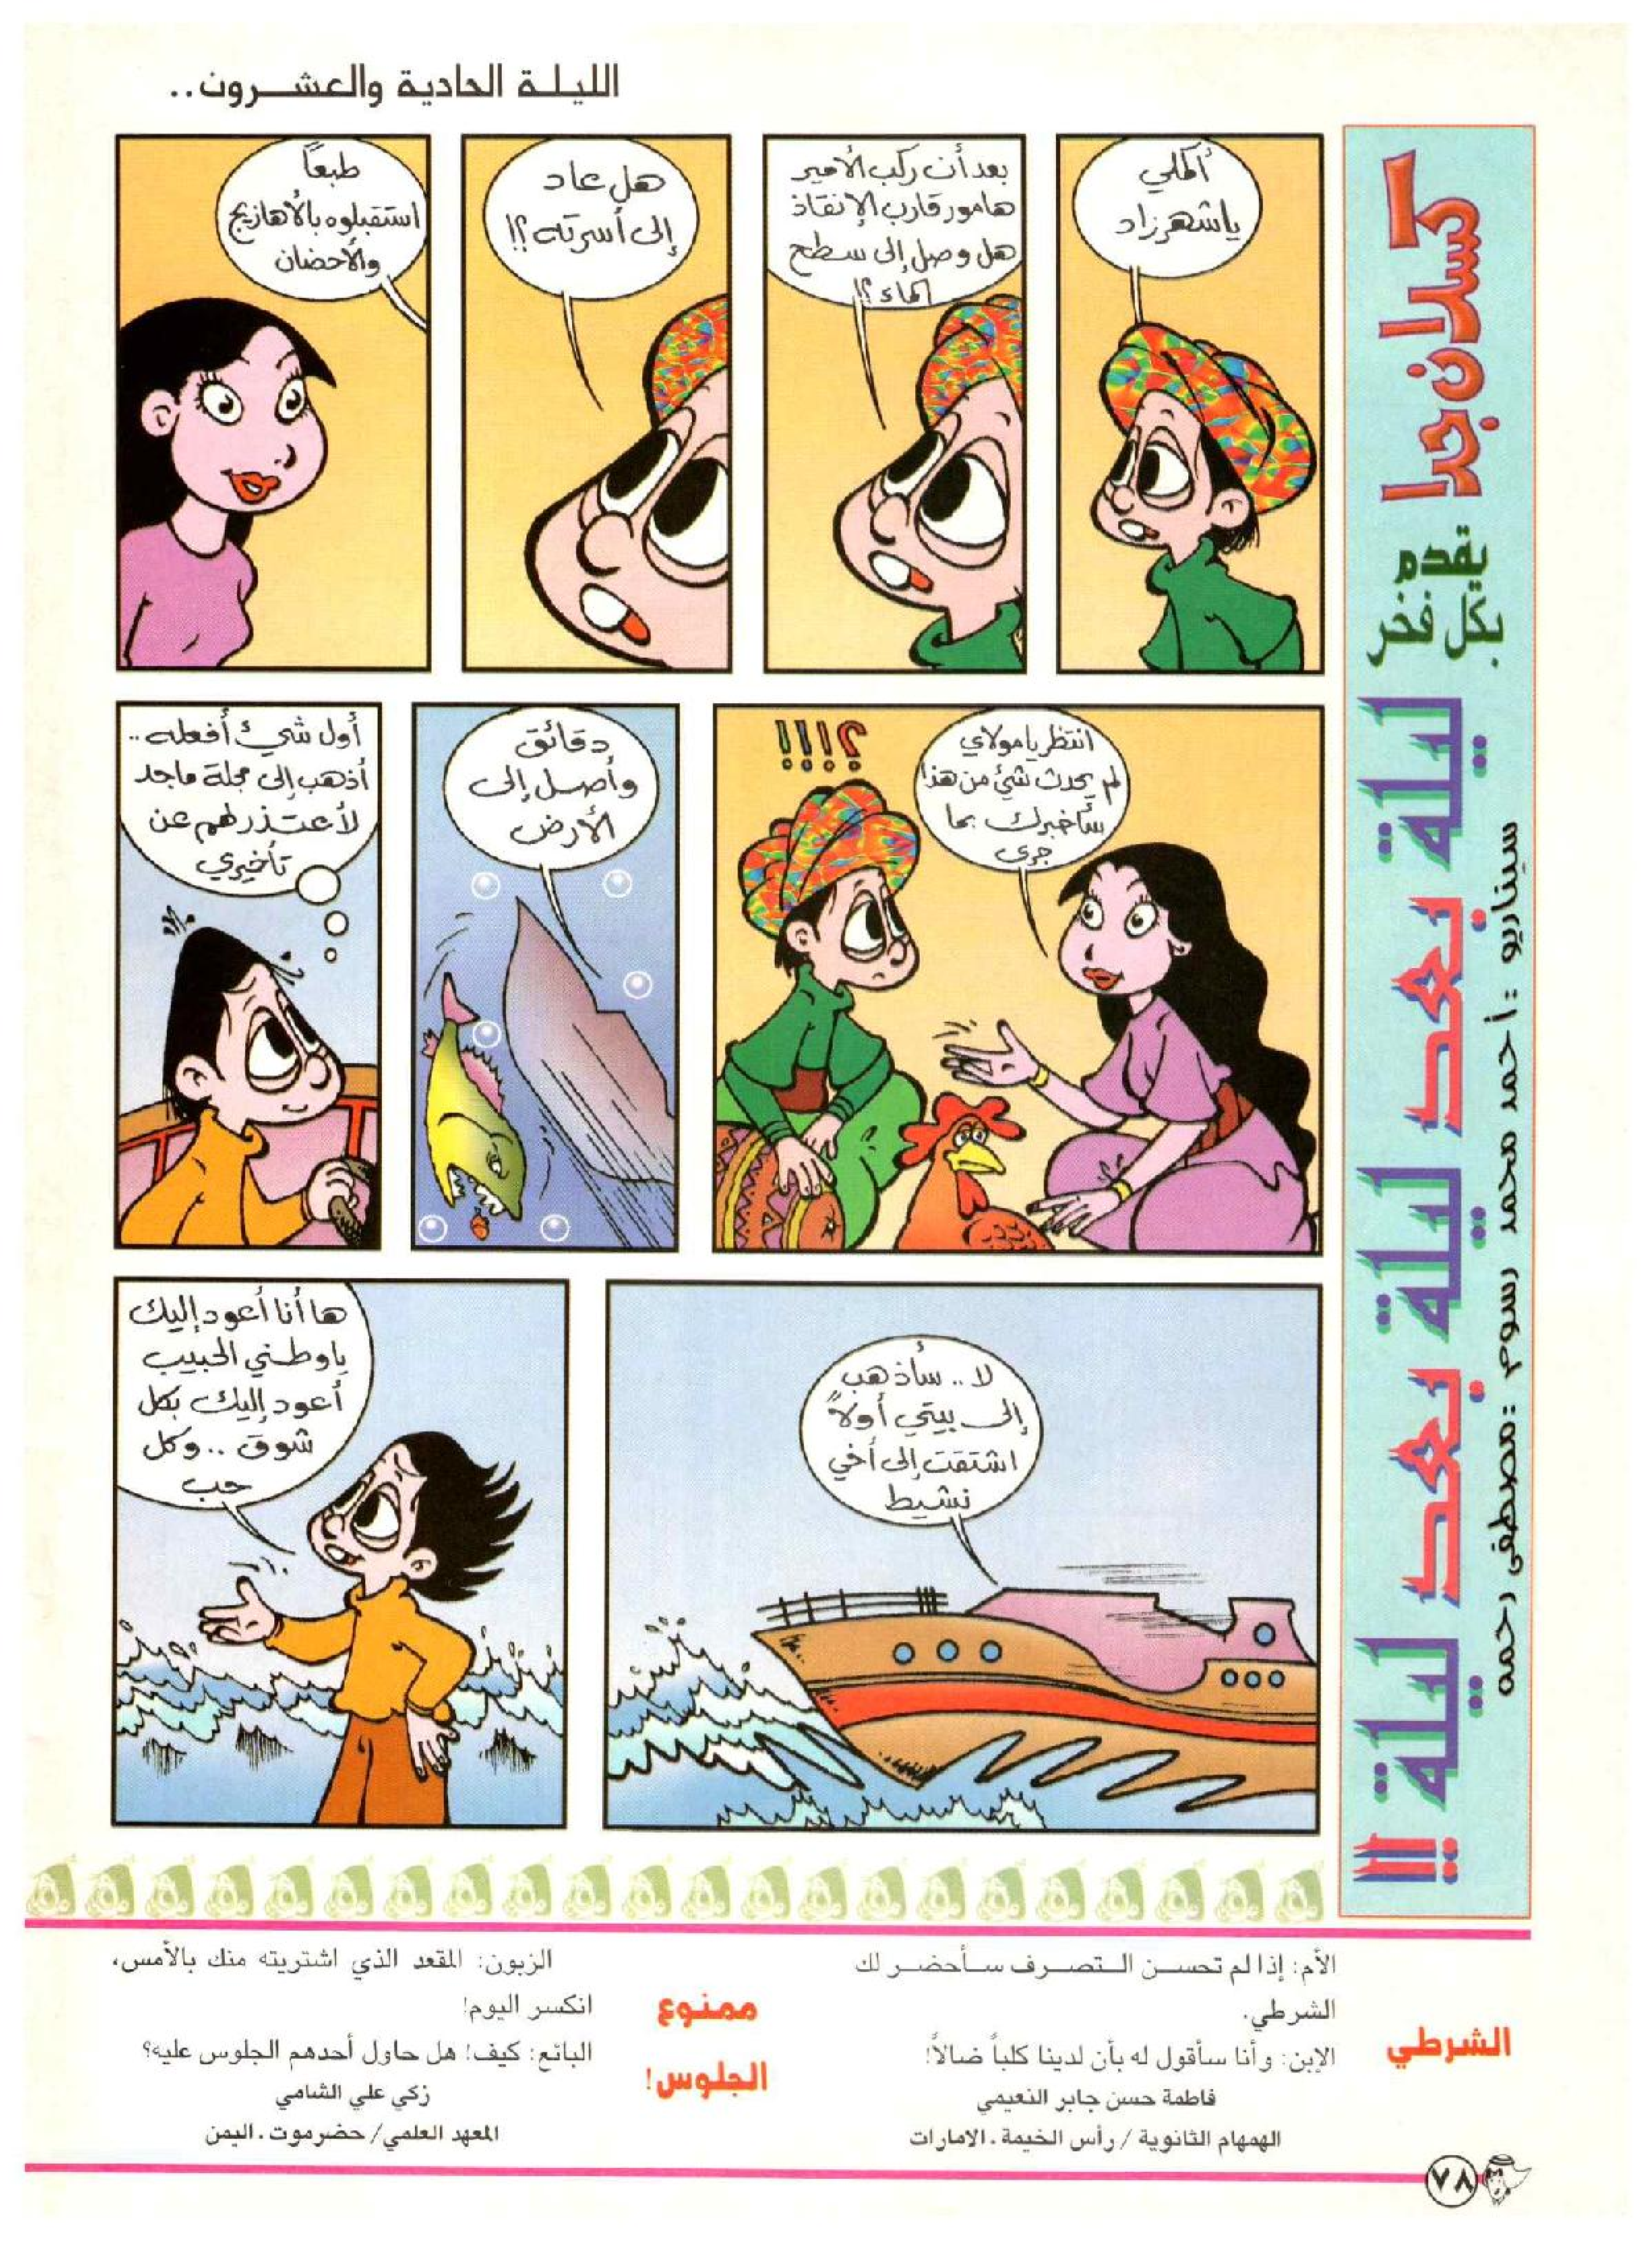 الليلة الحادية والعشرون..
كسلان جدا
يقدم
بكل فخر
ليلة بعد ليلة بعد ليلة !!
سيناريو : أحمد محمد رسوم : مصطفى رحمه
أكملي
ياشهرزاد
بعد أن ركب الأمير
هامور قارب الإنقاذ
هل وصل إلى سطح
الماء ؟!
هل عاد
إلى أسرته ؟!
طبعاً
استقبلوه بالأهازيج
والأحضان
انتظر يا مولاي
لم يحدث شئ من هذا
سأخبرك بما
جرى
؟!!!
دقائق
وأصل إلى
الأرض
أول شيء أفعله ..
أذهب إلى مجلة ماجد
لأعتذر لهم عن
تأخيري
لا .. سأذهب
إلى بيتي أولاً
اشتقت إلى أخي
نشيط
ها أنا أعود إليك
يا وطني الحبيب
أعود إليك بكل
شوق .. وكل
حب
الشرطي
الأم: إذا لم تحسن التصرف سأحضر لك
الشرطي.
الإبن: وأنا سأقول له بأن لدينا كلباً ضالاً!
فاطمة حسن جابر النعيمي
الهمهام الثانوية / رأس الخيمة . الامارات
ممنوع
الجلوس!
الزبون: المقعد الذي اشتريته منك بالأمس،
انكسر اليوم!
البائع: كيف! هل حاول أحدهم الجلوس عليه؟
زكي علي الشامي
المعهد العلمي/ حضرموت . اليمن
٧٨